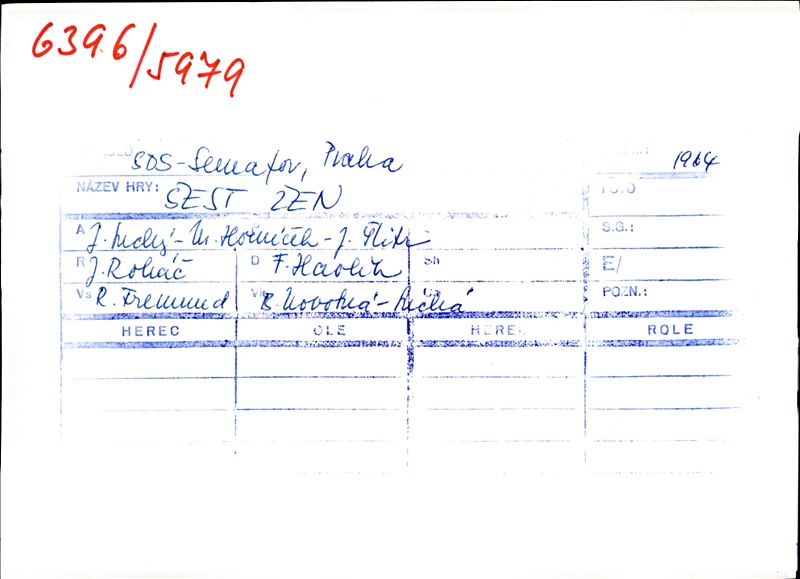 6396/5979
SDS-Semafor, Praha 1964
NÁZEV HRY: ŠEST ŽEN FOTO
A J. Suchý - M. Horníček - J. Šlitr S.G.:
R J. Roháč D F. Havlík Sh E/
Vs R. Fremund Vk B. Novotná-Suchá POZN.:
HEREC OLE HEREC ROLE